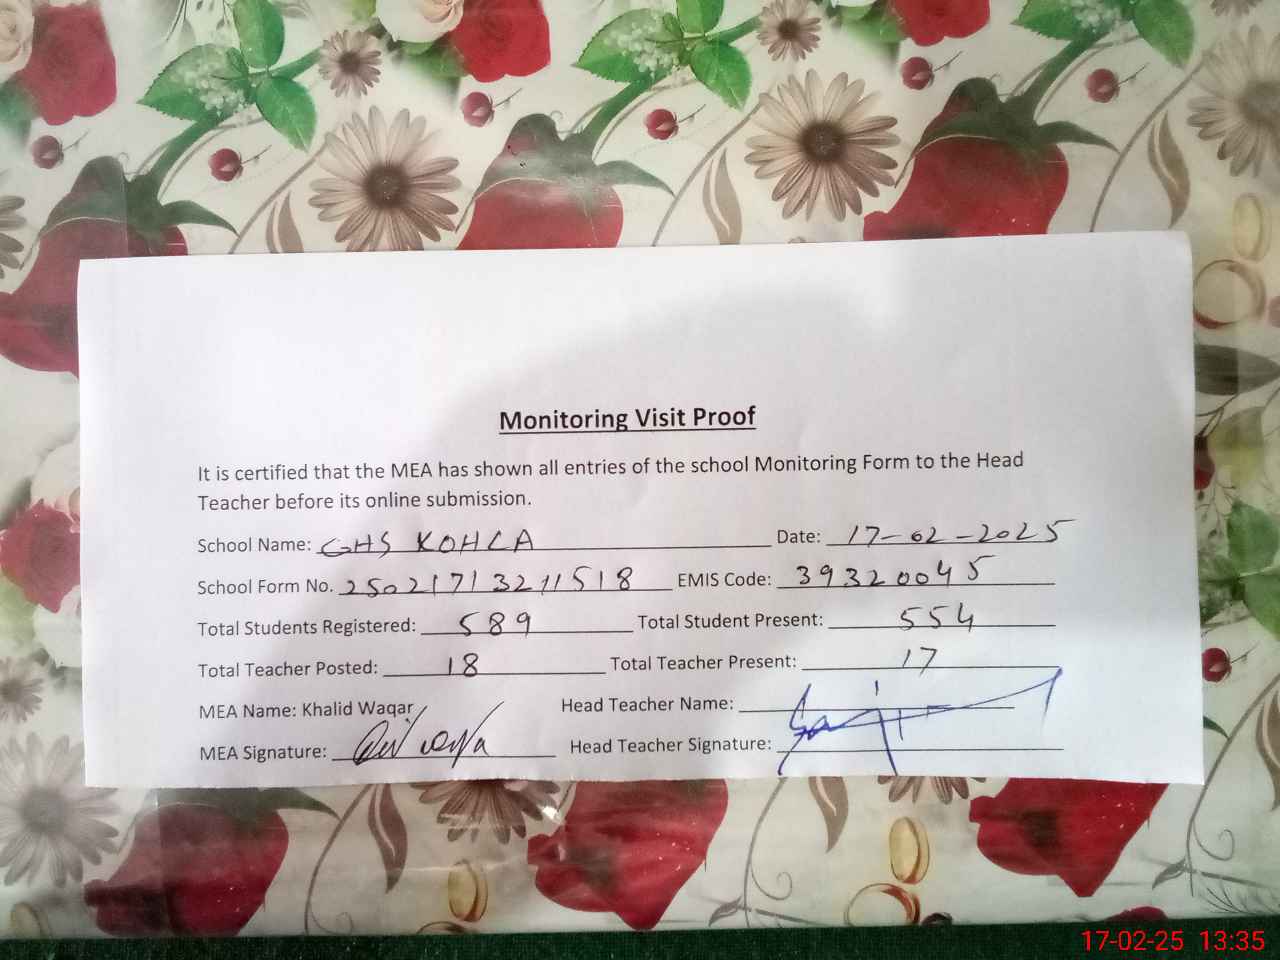 Monitoring Visit Proof
It is certified that the MEA has shown all entries of the school Monitoring Form to the Head
Teacher before its online submission.
School Name: GHS KOHLA Date: 17-02-2025
School Form No. 25021713211518 EMIS Code: 39320045
Total Students Registered: 589 Total Student Present: 554
Total Teacher Posted: 18 Total Teacher Present: 17
MEA Name: Khalid Waqar Head Teacher Name:
MEA Signature: Head Teacher Signature:
17-02-25 13:35